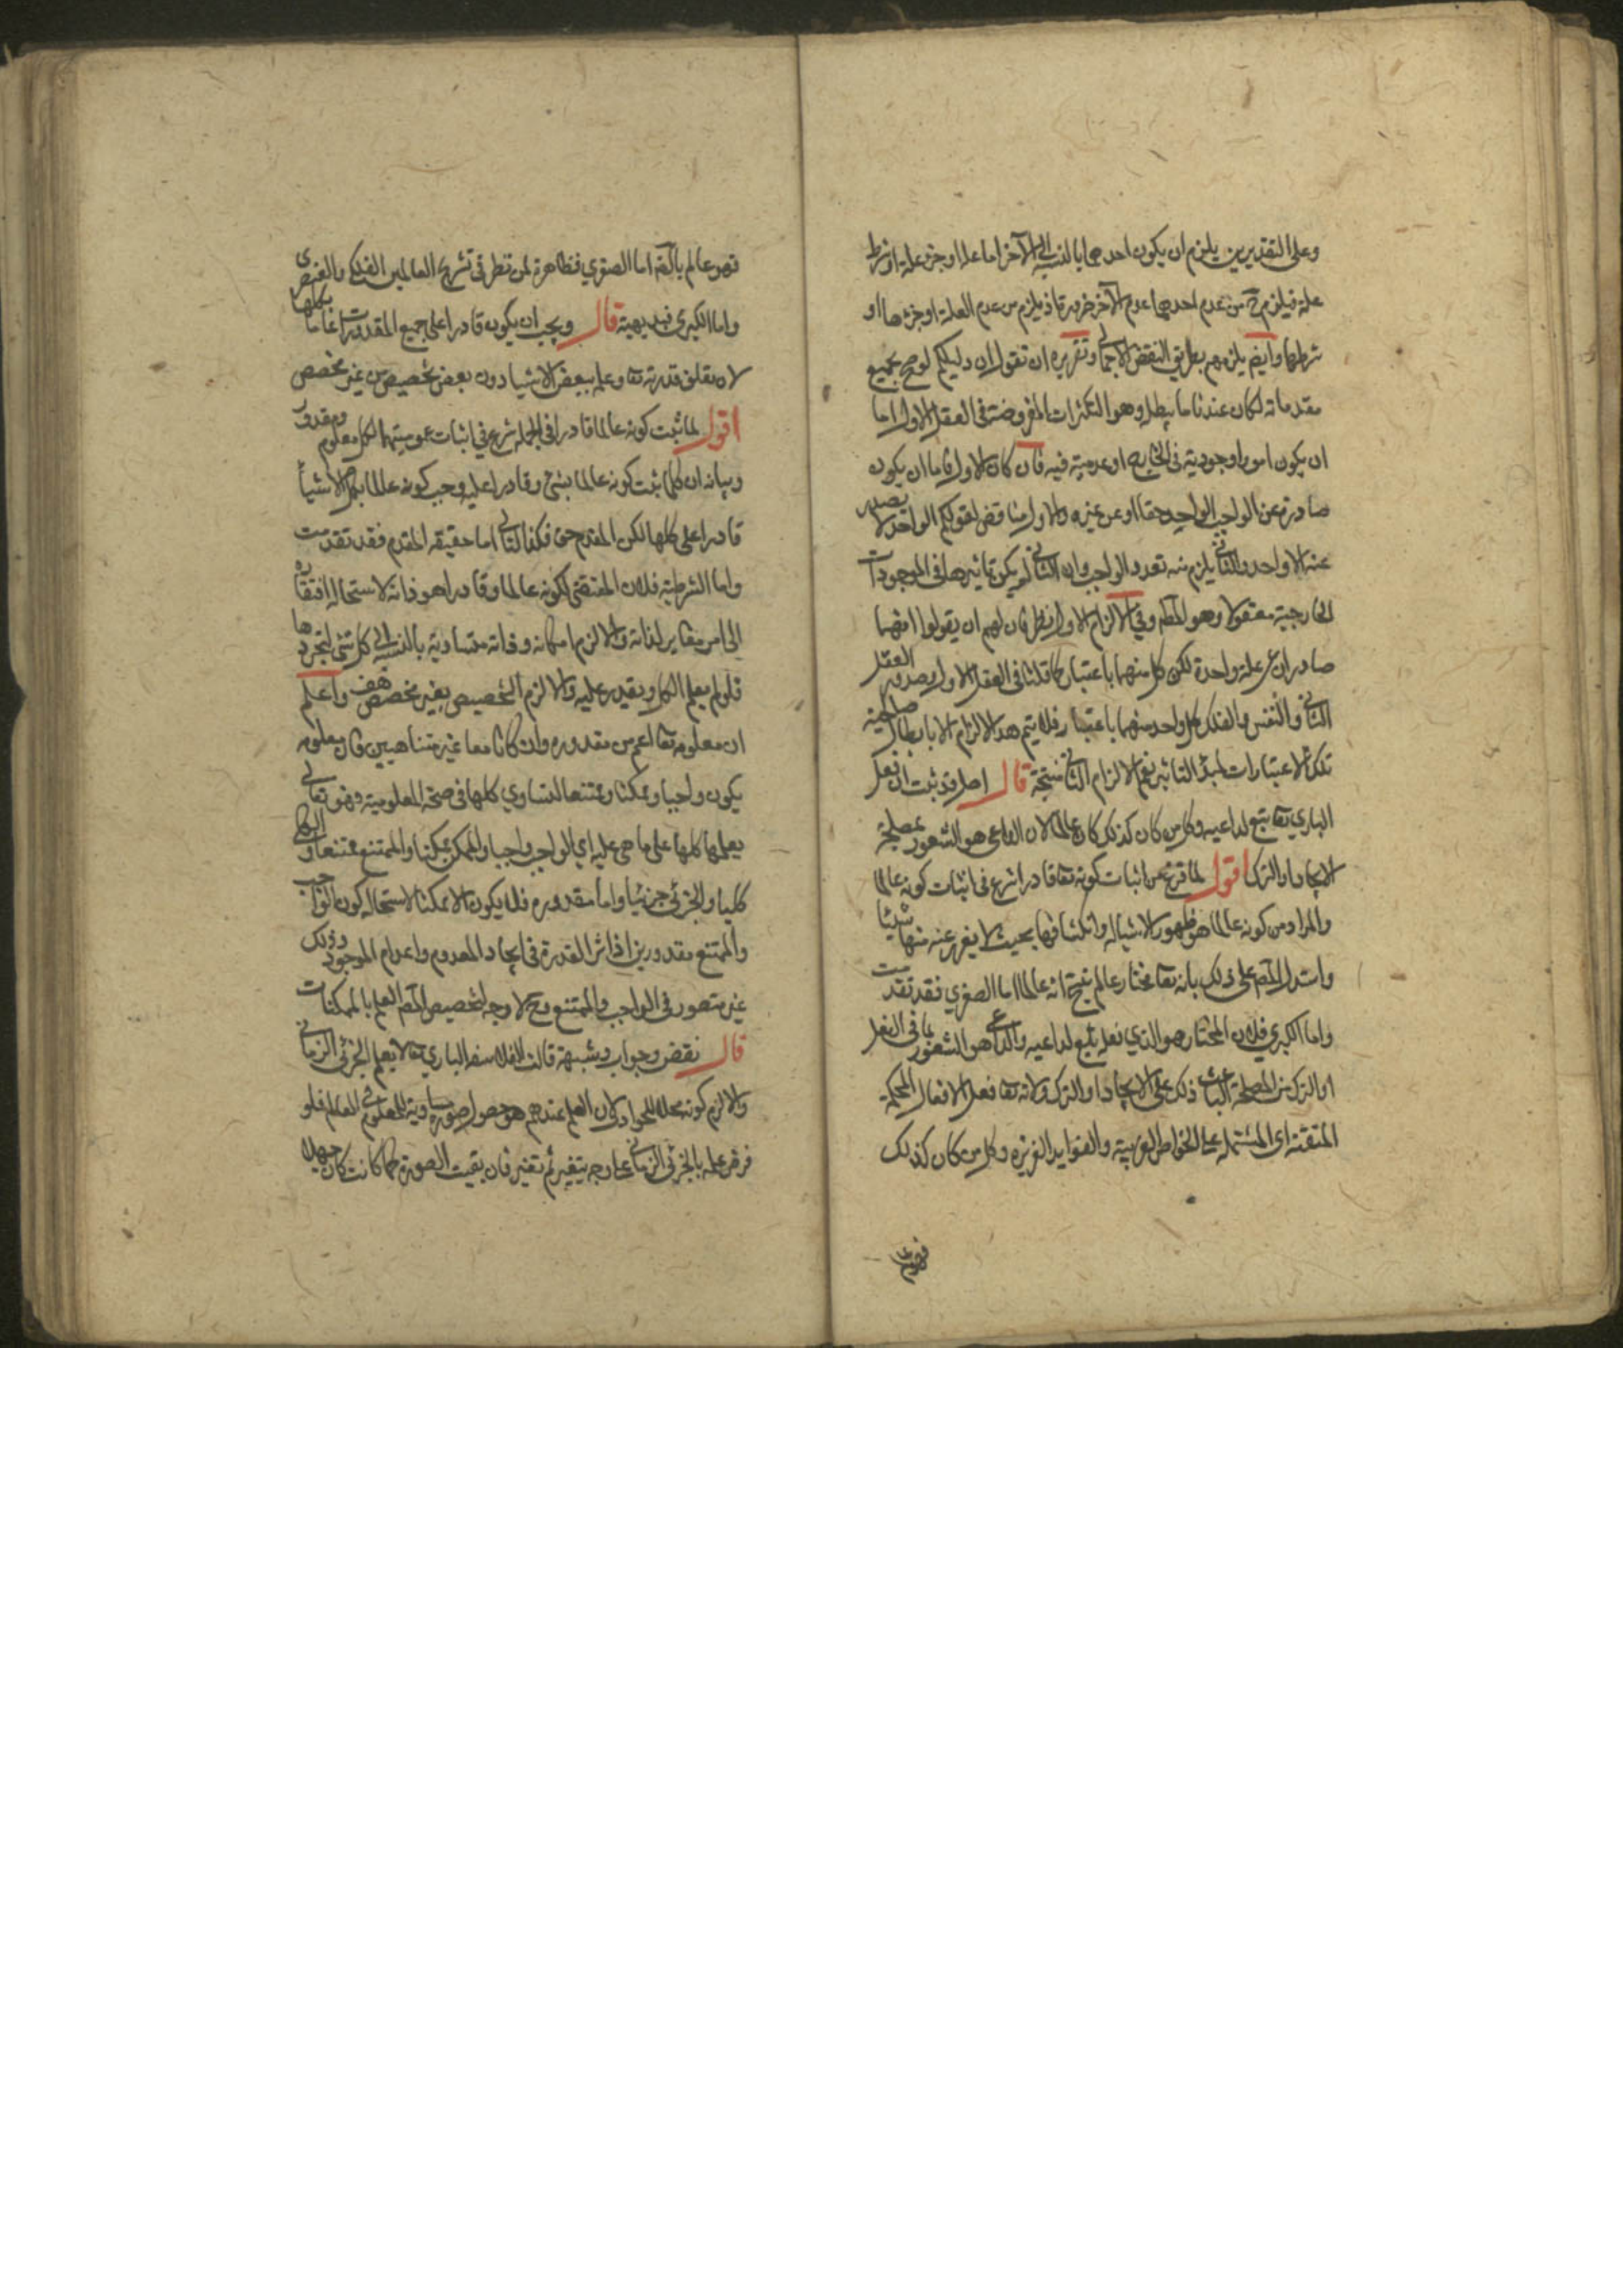 وعلى التقديرين يلزم ان يكون احدهما بالنسبة الى الآخر اما علة او جزء علة او شرط
علة فيلزم ح من عدم احدهما عدم الآخر ضرورة اذ يلزم من عدم العلة او جزئها او
شرطها وايضا يلزمهم بطريق النقض الاجمالي وتقريره ان تقول ان دليلكم لو صح بجميع
مقدماته لكان عندنا ما يبطله وهو التكثرات المفروضة في العقل الاول اما
ان يكون امورا وجودية في الخارج او عدمية فيه فان كان الاول فاما ان يكون
صادرة عن الواجب الواحد حقا او عن غيره والاول مناقض لقولكم الواحد لا يصدر
عنه الا واحد والثاني يلزم منه تعدد الواجب وان الثاني لم يكن تاثيرها في الموجودات
الخارجية معقولا وهو المط وفي الالزام الاول نظر فان لهم ان يقولوا انهما
صادران عن علة واحدة لكن كل منهما باعتبار كما قلنا في العقل الاول يصدر العقل
الثاني والنفس والفلك كل واحد منهما باعتبار فلا يتم هذا الالزام الا بابطال صلاحية
تلك الاعتبارات لمبدأ التاثير نعم الالزام الثاني متجه قال اصل قد ثبت ان فعل
الباري تعا تبع لداعيه وكل من كان كذلك كان عالما لان الداعي هو الشعور بمصلحة
الايجاد او الترك اقول لما فرغ من اثبات كونه تعا قادرا شرع في اثبات كونه عالما
والمراد من كونه عالما هو ظهور الاشيا له وانكشافها بحيث لا يغرب عنه منها شيئا
واستدل المص على ذلك بانه تعا مختار عالم ينتج انه عالما اما الصغري فقد تقدمت
واما الكبري فلان المختار هو الذي فعله يتبع لداعيه والداعي هو الشعور بما في الفعل
او الترك من المصلحة الباعث ذلك على الايجاد او الترك ولانه تعا فعل الافعال المحكمة
المتقنة اي المشتملة على الخواص الغريبة والفوايد الغزيرة وكل من كان كذلك
فهو عالم
فهو عالم بالضرورة اما الصغري فظاهرة لمن نظر في تشريح العالمين الفلكي والعنصري
واما الكبري فبديهية قال ويجب ان يكون قادرا على جميع المقدورات عالما بكلها
لان تعلق قدرته تعا وعلمه ببعض الاشيا دون بعض تخصيص من غير مخصص
اقول لما ثبت كونه عالما قادرا في الجملة شرع في اثبات عموميتهما لكل معلوم ومقدور
وبيانه ان كلما ثبت كونه عالما بشئ وقادرا عليه وجب كونه عالما بكل الاشيأ
قادرا على كلها لكن المقدم حق فكذا التالي اما حقيقة المقدم فقد تقدمت
واما الشرطية فلان المقتضي لكونه عالما وقادرا هو ذاته لاستحالة افتقاره
الى امر مغاير لذاته والا لزم امكانه وذاته متساوية بالنسبة الى كل شئ لتجردها
فلو لم يعلم الكل ويقدر عليه والا لزم التخصيص بغير مخصص هف واعلم
ان معلومه تعا اعم من مقدوره وان كانا معا غير متناهيين فان معلومه
يكون واجبا وممكنا وممتنعا لتساوي كلها في صحة المعلومية وهو تعالى
يعلمها كلها على ما هي عليه اي الواجب واجبا والممكن ممكنا والممتنع ممتنعا والكلي
كليا والجزئي جزئيا واما مقدوره فلا يكون الا ممكنا لاستحالة كون الواجب
والممتنع مقدورين اذ اثر القدرة في ايجاد المعدوم واعدام الموجود وذلك
غير متصور في الواجب والممتنع وح لا وجه لتخصيص المص العلم بالممكنات
قال نقض وجواب وشبهة قالت الفلاسفة الباري تعا لا يعلم الجزئي الزماني
والا لزم كونه محلا للحوادث لان العلم عندهم هو حصول صورة مساوية للمعلوم في العالم فلو
فرض علمه بالجزئي الزماني على وجه يتغير ثم تغير فان بقيت الصورة كما كانت كان جهلا